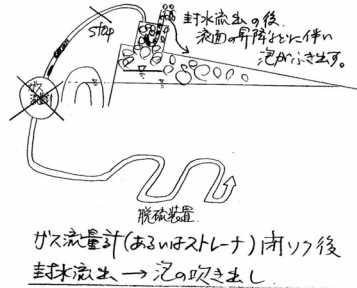 stop
封水流出の後、
液面の昇降などに伴い
泡がふき出す。
ガス
流量計
脱硫装置
ガス流量計(あるいはストレーナ)閉ソク後
封水流出→泡の吹き出し